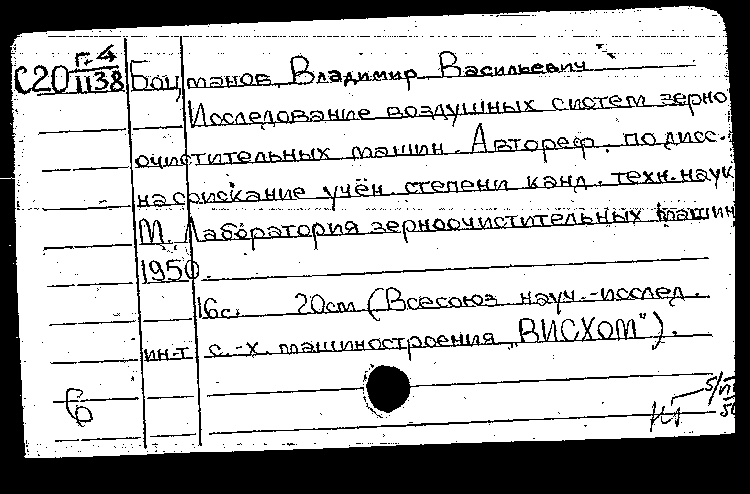 Г-4
С20 1138 Боцманов, Владимир Васильевич
Исследование воздушных систем зерно
очистительных машин. Автореф. по дисс.
на соискание учён. степени канд. техн. наук
М. Лаборатория зерноочистительных машин
1950.
16с. 20см (Всесоюз науч.-исслед.
ин-т с.-х. машиностроения „ВИСХОМ").
6